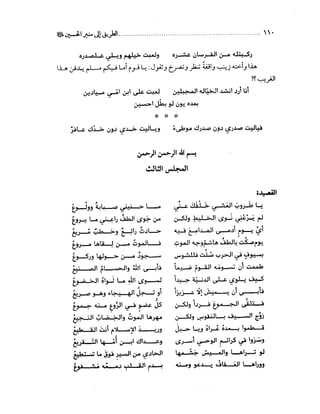 ١١٠ ........ الطريق إلى منبر الحسين
ركبنله مـن الفرسان عشره ولعبت خيلهم ويلي علـصدره
هذا وأخته زينب واقفة تنظر وتصرخ وتقول: يا قوم أما فيكم مسلم يدفن هذا
الغريب؟!
أنا أرد انشد الخياله المجبلين لعبت على ابن امّي ميادين
بعده يون لو بطّل احسين
* * *
فياليت صدري دون صدرك موطئ وياليت خدي دون خدّك عافرُ
بسم الله الرحمن الرحمن
المجلس الثالث
القصيدة
يا طروب العشي خلفك عنّي ما حنيني صبابة وولوع
لم يرعني نوى الخليط ولكن من جوى الطف راعني ما يروع
أيّ يوم أدمى المدامع فيه حادث رائع وخطب مريع
يوم صكّت بالطف هاشم وجه الموت فالموت من لقاها مروع
بسيوف في الحرب صلّت فللشوس سجود من حولها وركوع
طمعت أن تسومه القوم ضيماً فأبى الله والحسام الصنيع
كيف يلوي على الدنية جيداً لسوى الله ما لواه الخضوع
فأبى أن يعيش إلا عزيزاً أو تجلّى الهيجاء وهو صريع
فتلقّى الجموع فرداً ولكن كلّ عضو في الرّوع منه جموع
زوّج السيف بالنفوس ولكن مهرها الموت والخضاب النجيع
قطعوا بعده عراه ويا حبل وريد الإسلام أنت القطيع
وسروا في كرائم الوحي أسرى وعداك ابن أمّها التقريع
لو تراها والعيس جشّمها الحادي من السير فوق ما تستطيع
ووراها العفاف يدعو ومنه بدم القلب دمعه مشفوع